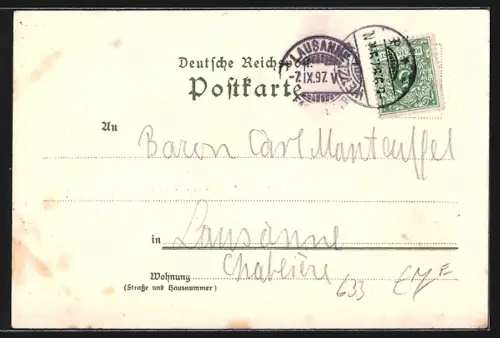 Deutsche Reichspost
Postkarte
LAUSANNE
-7.IX.97.VI
An
Baron Carl Manteuffel
in
Lausanne
Chablière
Wohnung
(Straße und Hausnummer)
633